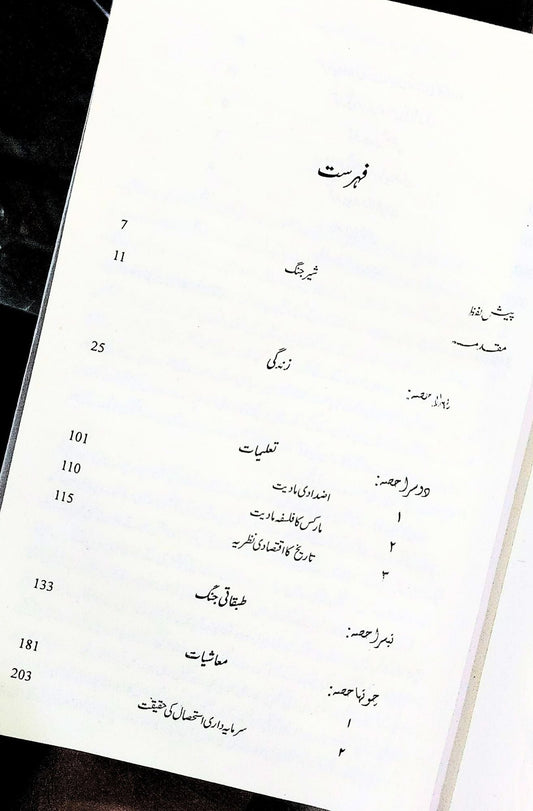 فہرست
پیش لفظ شیر جنگ 7
مقدمہ 11
پہلا حصہ: زندگی 25
دوسرا حصہ: تعلیمات
۱ اضدادی مادیت 101
۲ مارکس کا فلسفہ مادیت 110
۳ تاریخ کا اقتصادی نظریہ 115
تیسرا حصہ: طبقاتی جنگ 133
چوتھا حصہ: معاشیات
۱ 181
۲ سرمایہ داری استحصال کی حقیقت 203